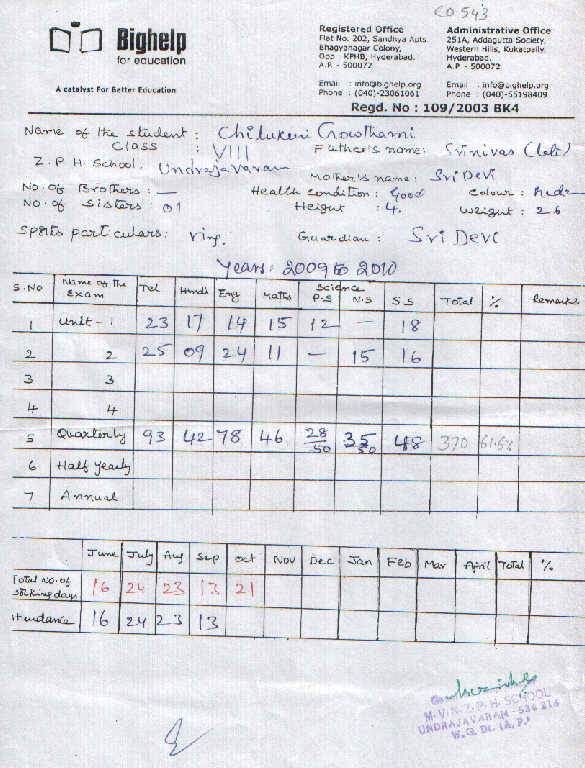 CO-543
Bighelp
for education
A catalyst For Better Education
Registered Office
Flat No. 202, Sandhya Apts.
Bhagyanagar Colony,
Opp : KPHB, Hyderabad.
A.P. - 500072
Email : info@bighelp.org
Phone : (040)-23061061
Administrative Office
251A, Addagutta Society,
Western Hills, Kukatpally,
Hyderabad.
A.P - 500072
Email : info@bighelp.org
Phone : (040)-55198409
Regd. No : 109/2003 BK4
Name of the student : Chilukuri Gowthami
Class : VIII Father's name: Srinivas (late)
Z.P.H School, Undrajavaram Mother's name: Sri Devi
No. of Brothers : — Health condition : Good Colour :
No. of Sisters : 01 Height : 4. Weight : 26
Sports particulars: Guardian : Sri Devi
Years: 2009 to 2010
S.No Name of the Exam Tel Hindi Eng Maths Science P.S N.S S.S Total % Remarks
1 Unit - 1 23 17 14 15 12 — 18
2 2 25 09 24 11 — 15 16
3 3
4 4
5 Quarterly 93 42 78 46 28/50 35/50 48 370 61.6%
6 Half yearly
7 Annual
June July Aug Sep Oct Nov Dec Jan Feb Mar April Total %
Total No. of working days 16 24 23 13 21
Attendance 16 24 23 13
M.V.N.Z.P.H. SCHOOL
UNDRAJAVARAM - 534 216
W.G. Dt. (A.P.)